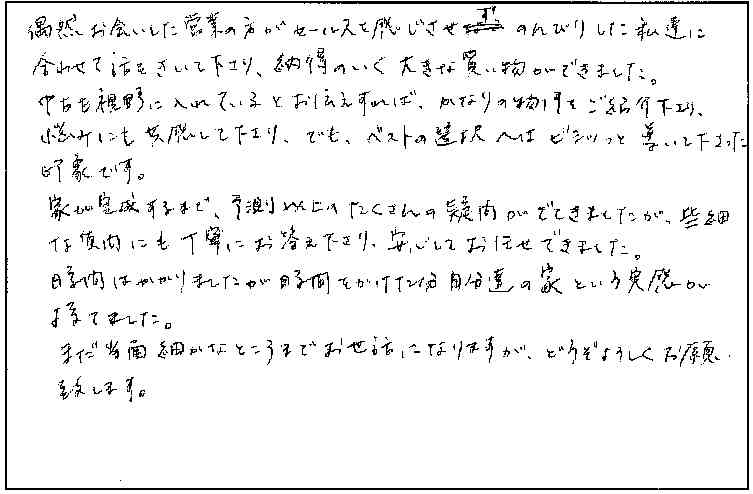 偶然お会いした営業の方がセールスを感じさせず のんびりした私達に
合わせて話をきいて下さり、納得のいく大きな買い物ができました。
中古も視野に入れているとお伝えすれば、かなりの物件をご紹介下さり、
悩みにも共感して下さり、でも、ベストの選択へはビシッっと導いて下さった
印象です。
家が完成するまで、予測以上のたくさんの疑問がでてきましたが、些細
な質問にも丁寧にお答え下さり、安心してお任せできました。
時間はかかりましたが時間をかけた分自分達の家という実感が
持てました。
まだ当面細かなところまでお世話になりますが、どうぞよろしくお願い
致します。